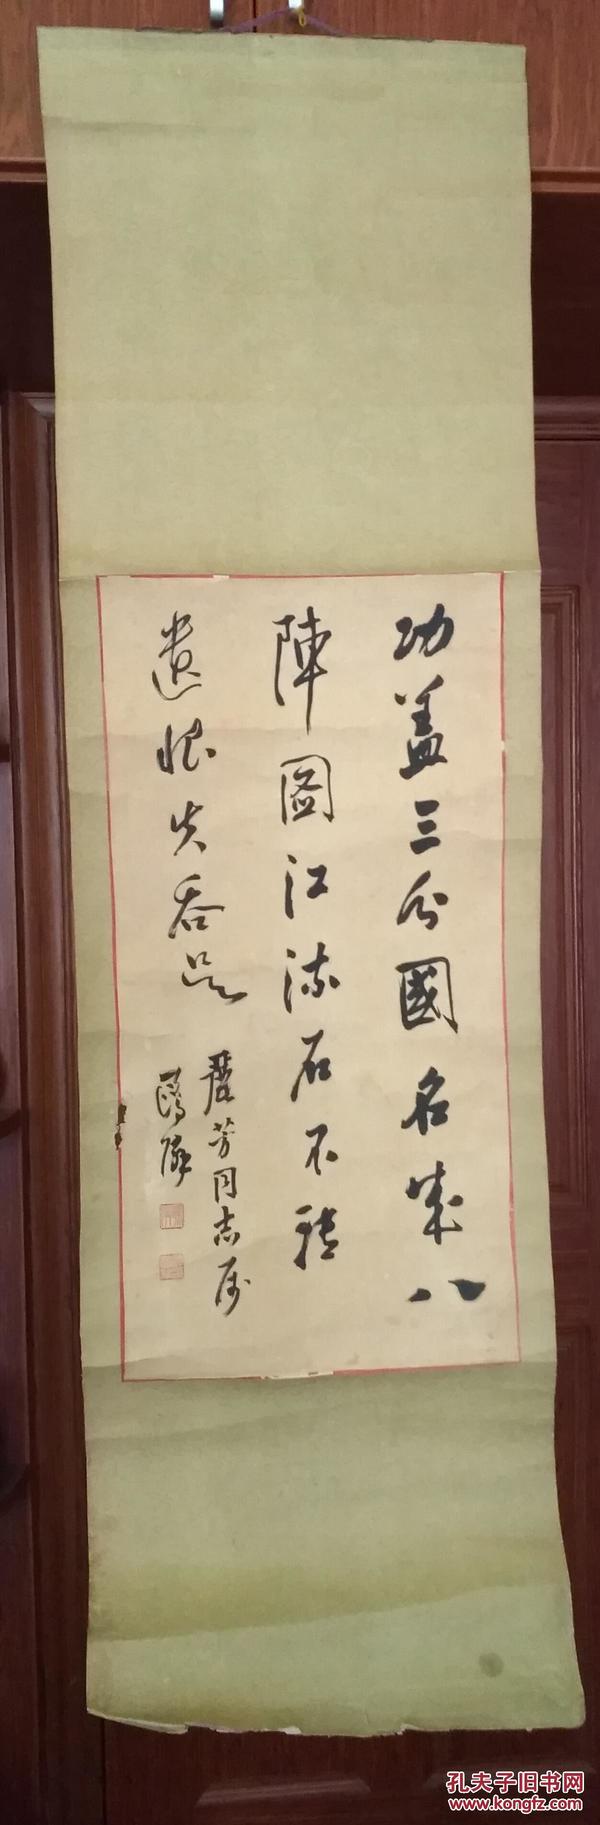 功盖三分國名成八
陣圖江流石不轉
遺恨失吞吴
芳同志属
孔夫子旧书网
www.kongfz.com